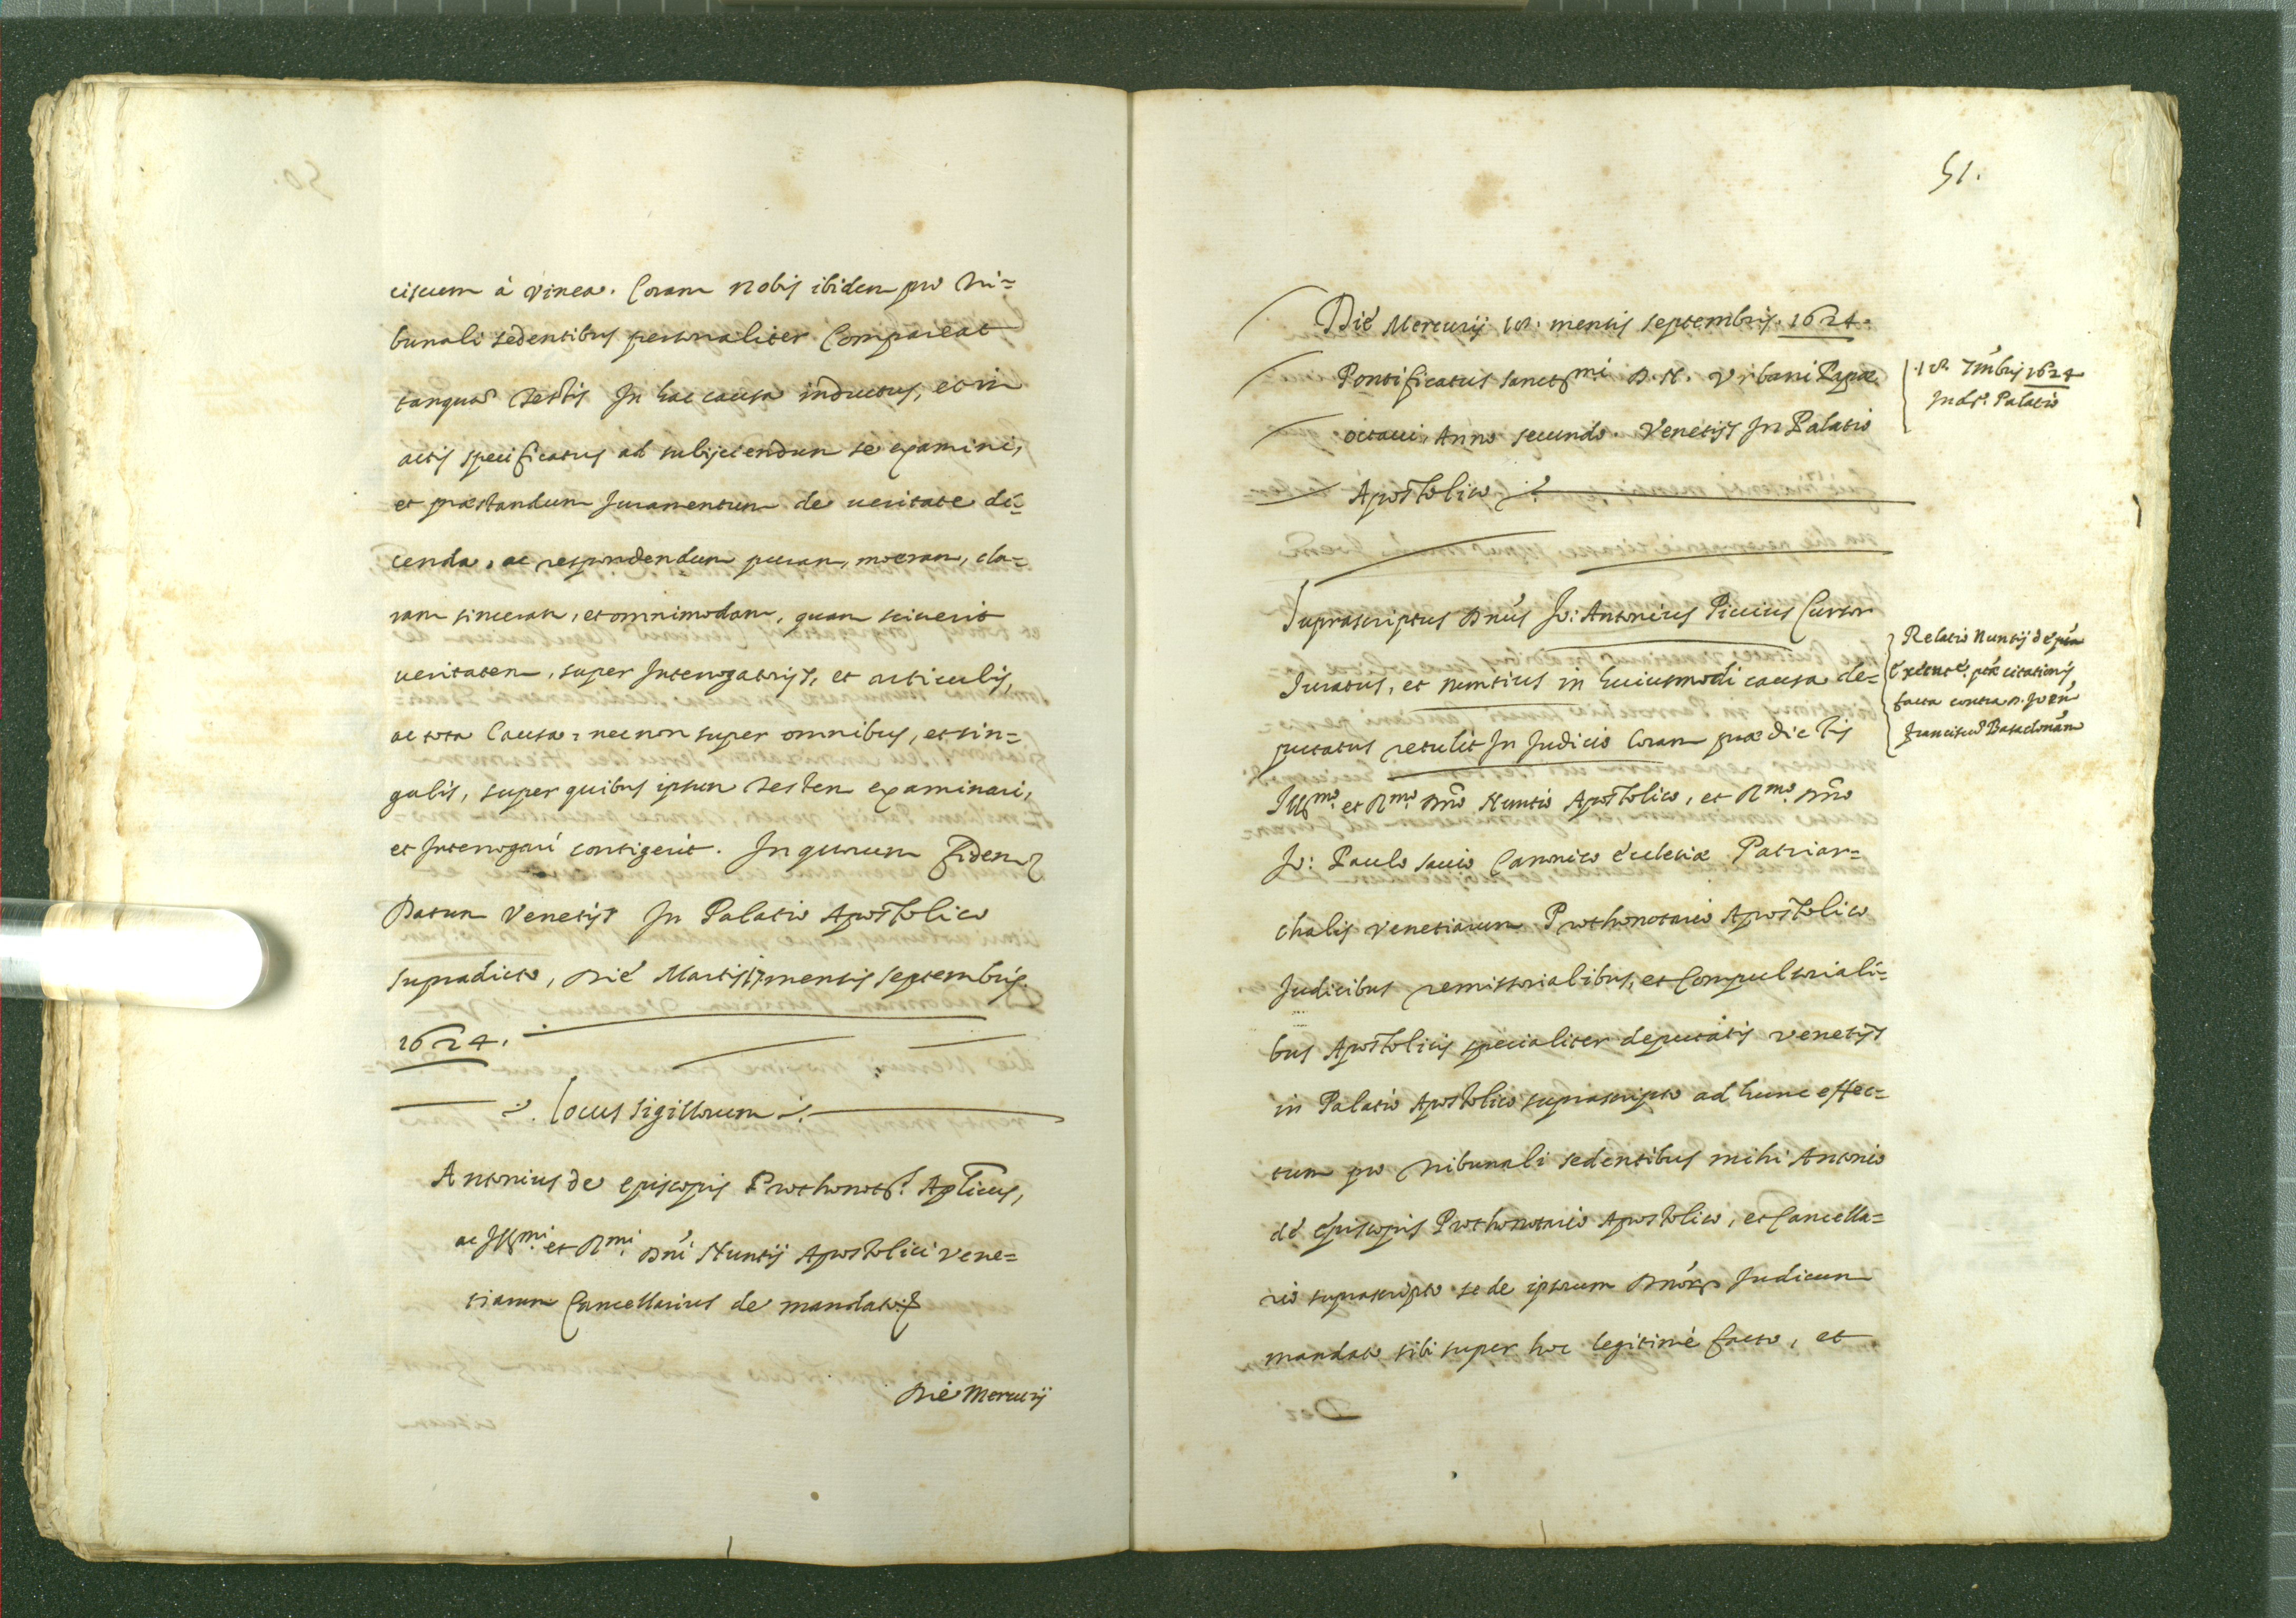 ciscum à Vinea. Coram nobis ibidem pro tri=
bunali sedentibus personaliter Compareat
tanquã Testis In hac causa inductus, et in
actis specificatus ad subijciendum se examini,
et præstandum Juramentum de ueritate di=
cenda, ac respondendum puram, meram, cla=
ram sinceram, et omnimodam, quam sciuerit
ueritatem, super Interrogatorijs, et articulis,
ac tota Causa, necnon super omnibus, et sin=
gulis, super quibus ipsum Testem examinari,
et Interrogari contigerit. In quorum fidem
Datum Venetijs In Palatio Apostolico
supradicto, Die Martis 17 mensis septembris.
1624.
Locus sigillorum
Antonius de episcopis Prothonots. Aplicus,
ac Illmi. et Rmi. Dni Nuntij Apostolici Vene=
tiarum Cancellarius de mandato
Die Mercurij
51.
Die Mercurij 18. mensis septembris. 1624.
Pontificatus sanctmi. D. N. Vrbani Papæ
octaui, Anno secundo. Venetijs In Palatio
Apostolico
18. 7mbris 1624
In dso. Palatio
Suprascriptus Dnus Jo: Antonius Piccius Cursor
Iuratus, et nuntius in huiusmodi causa de=
putatus retulit In Judicio Coram prædictis
Illmo. et Rmo. Dno Nuntio Apostolico, et Rmo. Dno
Jo: Paulo sauio Canonico ecclesiæ Patriar=
chalis Venetiarum Prothonotario Apostolico
Judicibus remissorialibus, et Compulsoriali=
bus Apostolicis specialiter deputatis Venetijs
in Palatio Apostolico suprascripto ad hunc effec=
tum pro tribunali sedentibus mihi Antonio
de Episcopis Prothonotario Apostolico, et Cancella=
rio suprascripto se de ipsorum Dnor. Judicum
mandato sibi super hoc legitimè facto, et
Relatio Nuntij de
citationis
facta contra D. Joen
Franciscu Basadonam